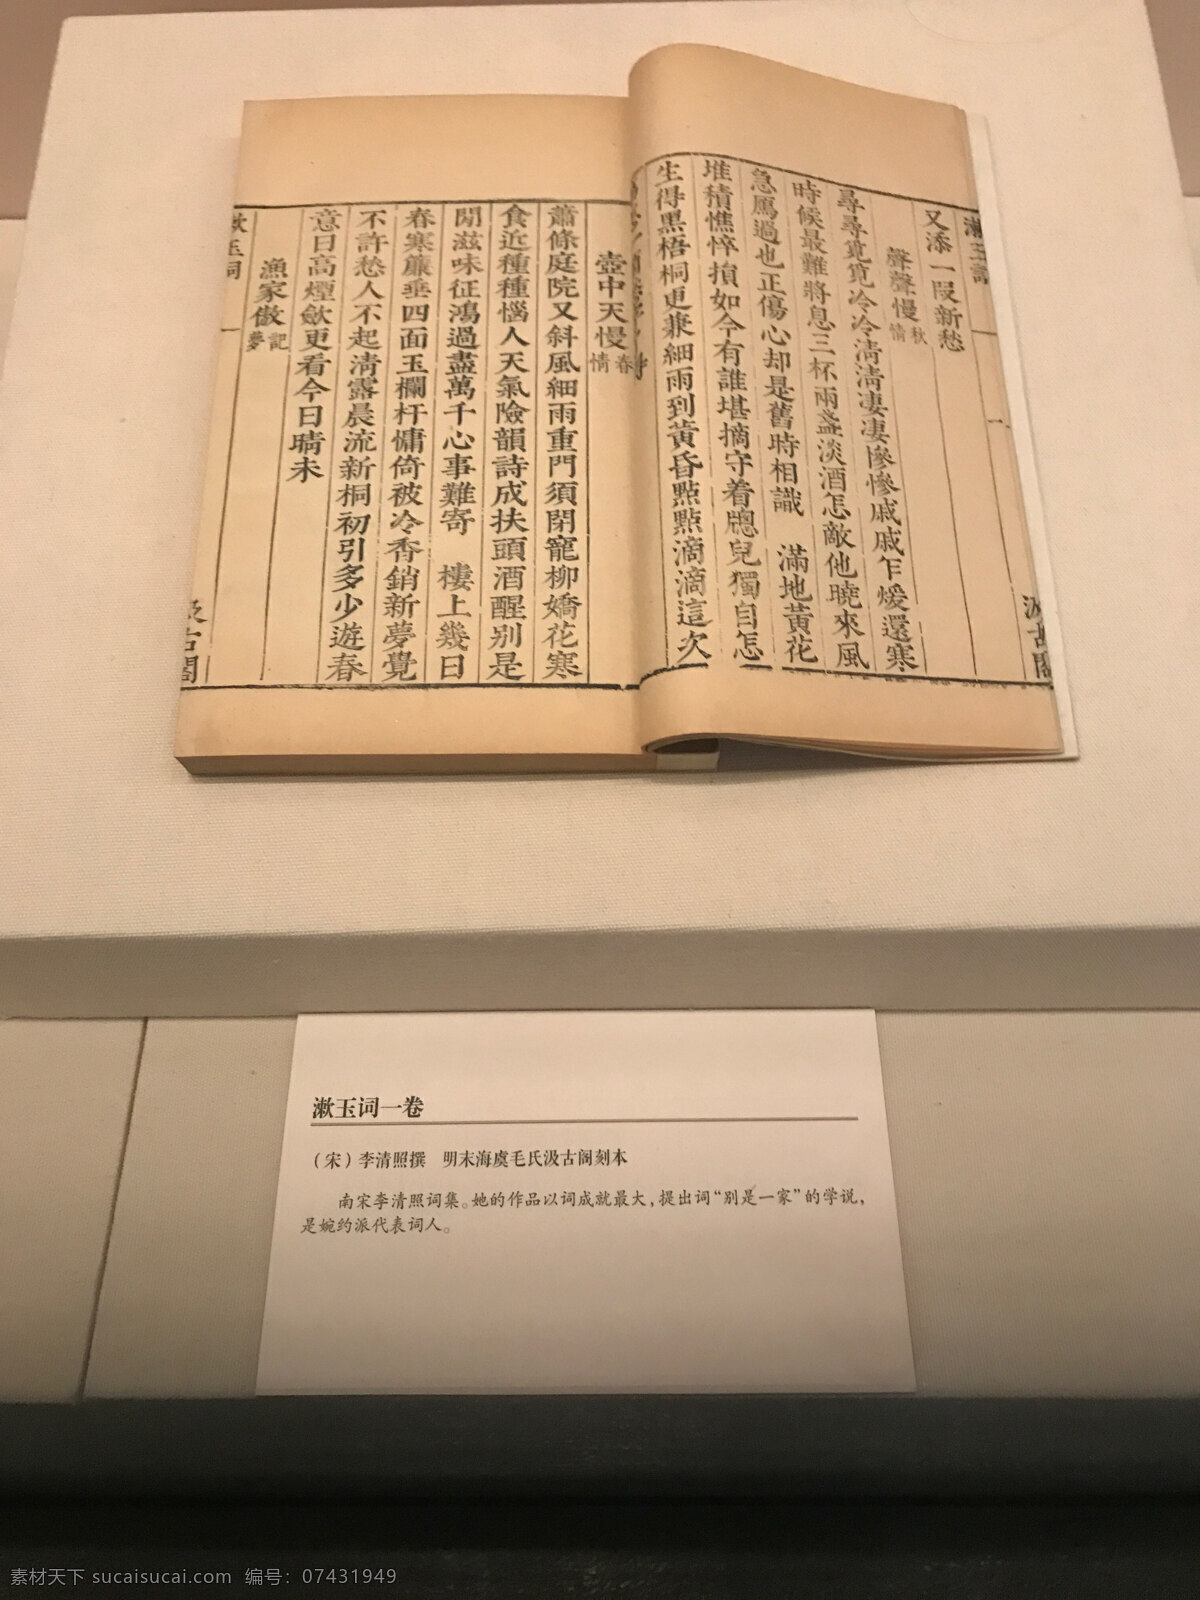 漱玉詞 一 汲古閣
又添一段新愁
聲聲慢 秋情
尋尋覓覓冷冷清清凄凄慘慘戚戚乍煖還寒
時候最難將息三杯兩盞淡酒怎敵他曉來風
急鴈過也正傷心却是舊時相識 滿地黃花
堆積憔悴損如今有誰堪摘守着牕兒獨自怎
生得黑梧桐更兼細雨到黃昏點點滴滴這次
壺中天慢 春情
蕭條庭院又斜風細雨重門須閉寵柳嬌花寒
食近種種惱人天氣險韻詩成扶頭酒醒别是
閒滋味征鴻過盡萬千心事難寄 樓上幾日
春寒簾垂四面玉欄杆慵倚被冷香銷新夢覺
不許愁人不起清露晨流新桐初引多少遊春
意日高煙斂更看今日晴未
漁家傲 記夢
漱玉詞 一 汲古閣
漱玉词一卷
（宋）李清照撰 明末海虞毛氏汲古阁刻本
南宋李清照词集。她的作品以词成就最大，提出词“别是一家”的学说，
是婉约派代表词人。
素材天下 sucaisucai.com 编号：07431949